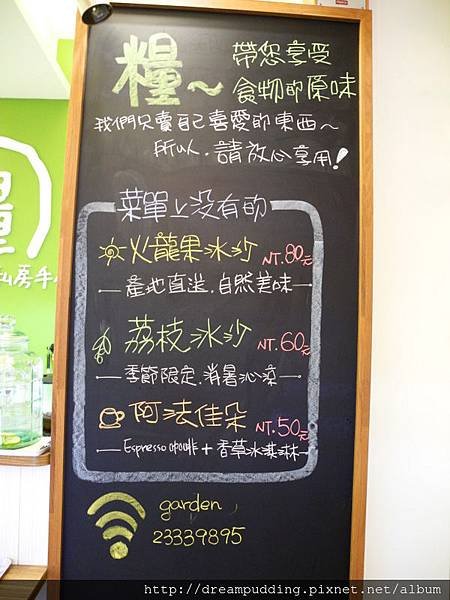 糧～ 帶您享受
食物的原味
我們只賣自己喜愛的東西～
所以,請放心享用!
菜單上没有的
火龍果冰沙 NT.80元
產地直送.自然美味
荔枝冰沙 NT.60元
季節限定.消暑沁涼
阿法佳朵 NT.50元
Espresso 咖啡 + 香草冰淇淋
garden
23339895
糧
私房手
http://dreampudding.pixnet.net/album